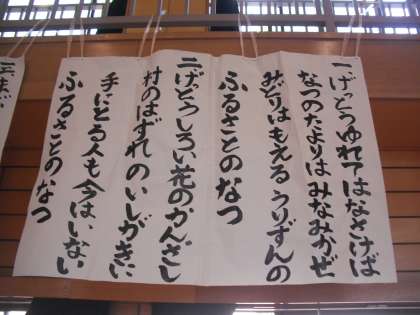 一げっとうゆれてはなさけば
なつのたよりはみなみかぜ
みどりはもえるうりずんの
ふるさとのなつ
二げっとうしろい花のかんざし
村のはずれのいしがきに
手にとる人も今はいない
ふるさとのなつ